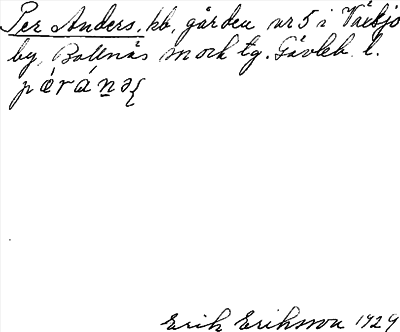 Per Anders, hb, gården nr 5 i Växsjö
by, Bollnäs sn och tg. Gävleb. l.
Erik Eriksson 1929